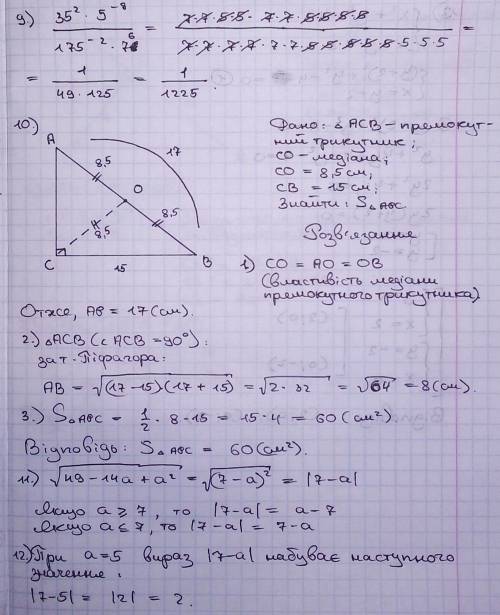 9) 35² · 5⁻⁸ / 175⁻² · 7⁶ = 7·7·5·5· 7·7·5·5·5·5 / 7·7·7·7·7·7·5·5·5·5·5·5·5·5 =
= 1 / 49 · 125 = 1 / 1225.
10.)
A
8,5
17
O
8,5
8,5
C
15
B
Дано: △ACB – премокут-
ний трикутник;
CO – медіана;
CO = 8,5 см,
CB = 15 см;
Знайти: S△ABC
Розв'язання
1) CO = AO = OB
(властивість медіани
премокутного трикутника)
Отже, AB = 17 (см).
2.) △ACB (∠ACB = 90°):
за т. Піфагора:
AB = √(17 – 15)(17 + 15) = √2 · 32 = √64 = 8 (см).
3.) S△ABC = 1/2 · 8 · 15 = 15 · 4 = 60 (см²)
Відповідь: S△ABC = 60 (см²).
11.) √49 – 14a + a² = √(7 – a)² = |7 – a|
Якщо a ≥ 7, то |7 – a| = a – 7
Якщо a ≤ 7, то |7 – a| = 7 – a
12.) При a = 5 вираз |7 – a| набуває наступного
значення:
|7 – 5| = |2| = 2.